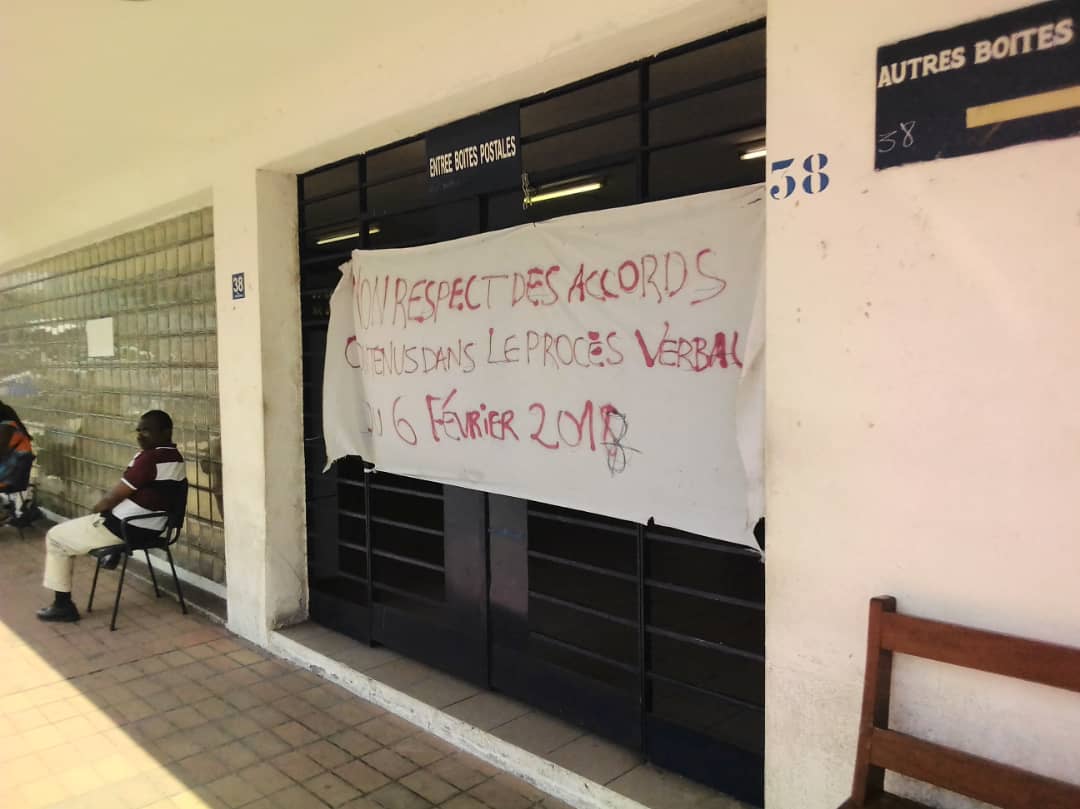 AUTRES BOITES
38
ENTREE BOITES POSTALES
38
38
NON RESPECT DES ACCORDS
CONTENUS DANS LE PROCÈS VERBAL
DU 6 FÉVRIER 2018